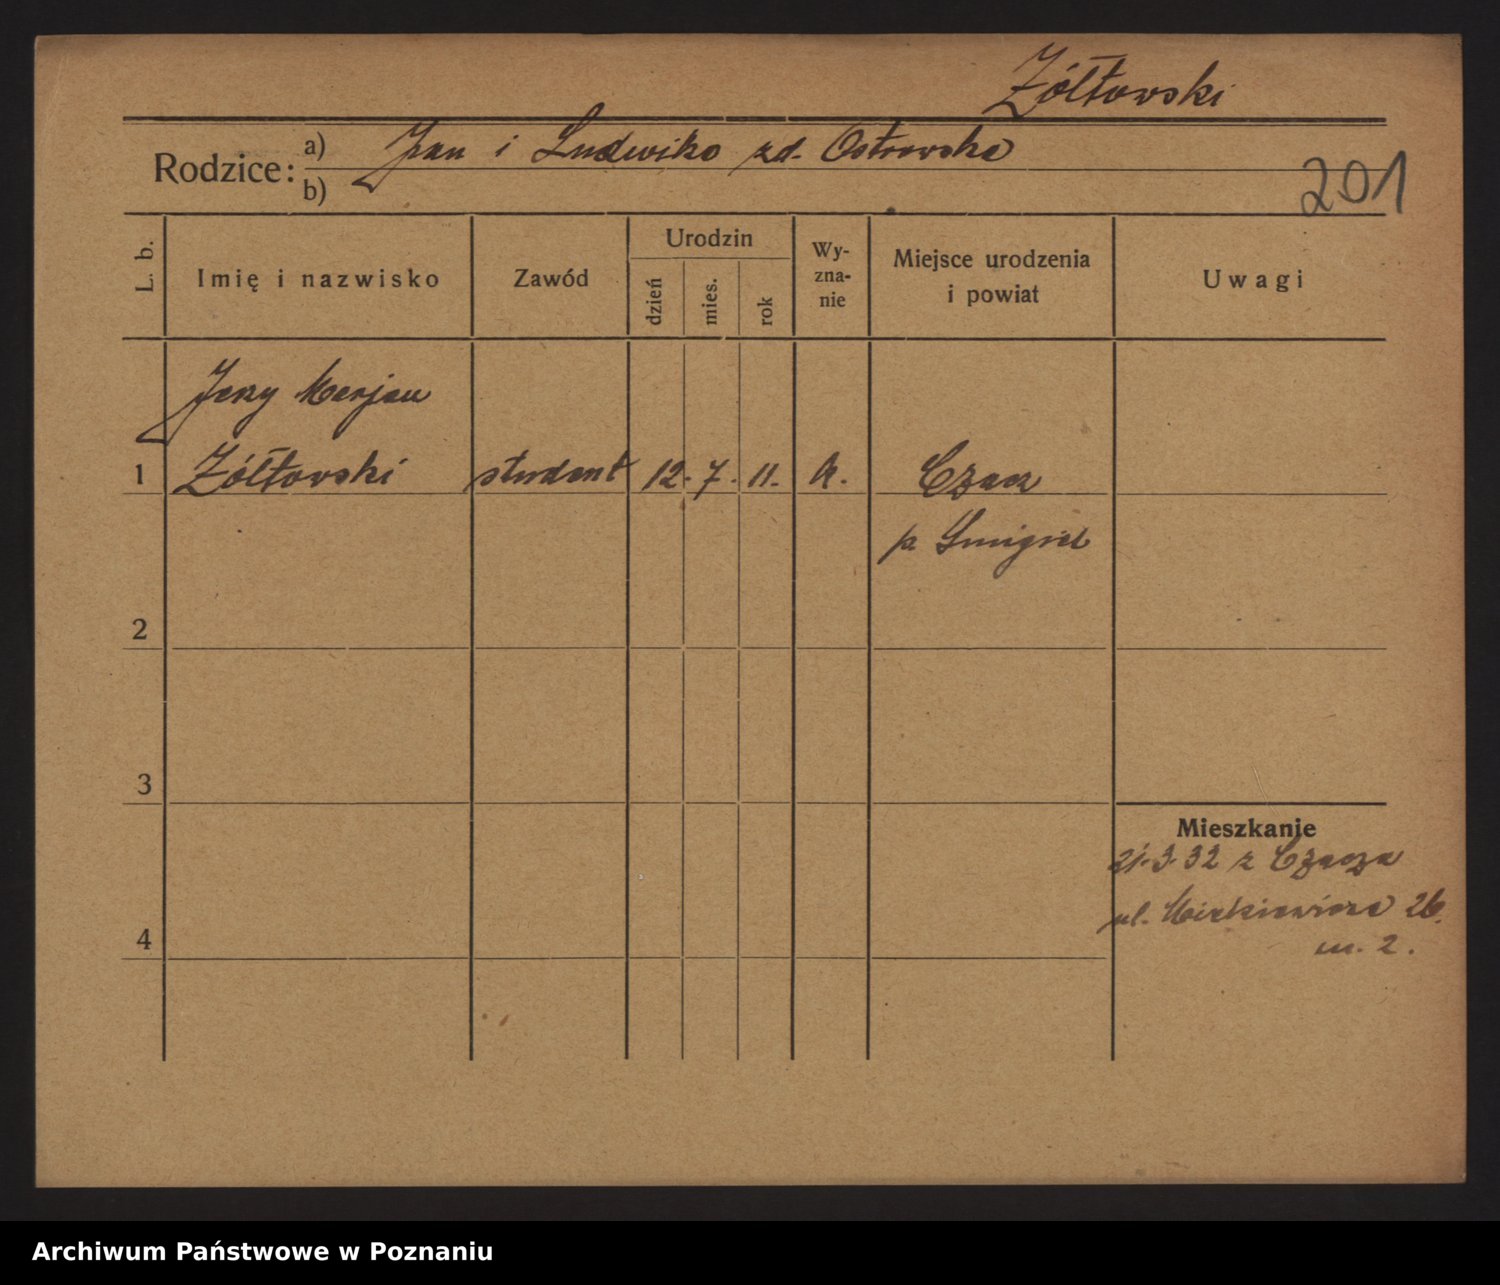 Żółtowski
Rodzice: a) Jan i Ludwika zd. Ostrowska
b)
201
L. b.
Imię i nazwisko
Zawód
Urodzin
dzień
mies.
rok
Wy-
zna-
nie
Miejsce urodzenia
i powiat
Uwagi
Jerzy Marjan
1 Żółtowski student 12. 7. 11. k. Czacz
p. Śmigiel
2
3
Mieszkanie
21.3.32 z Czacza
ul. Mickiewicza 26.
4
m. 2.
Archiwum Państwowe w Poznaniu